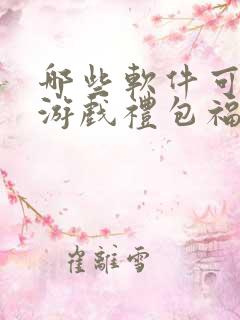 哪些軟件可
游戲禮包福
崔離雪